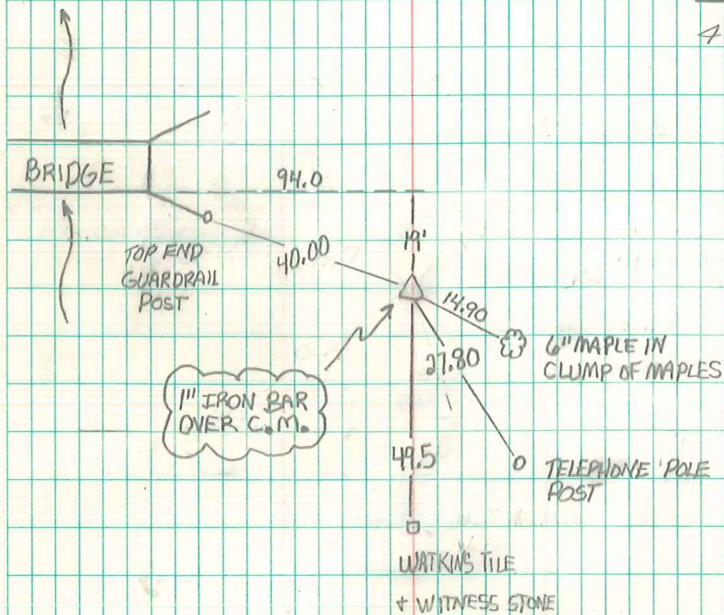 4
BRIDGE
94.0
19'
40.00
TOP END
GUARDRAIL
POST
14.90
27.80
6" MAPLE IN
CLUMP OF MAPLES
1" IRON BAR
OVER C.M.
49.5
TELEPHONE POLE
POST
WATKINS TILE
+ WITNESS STONE